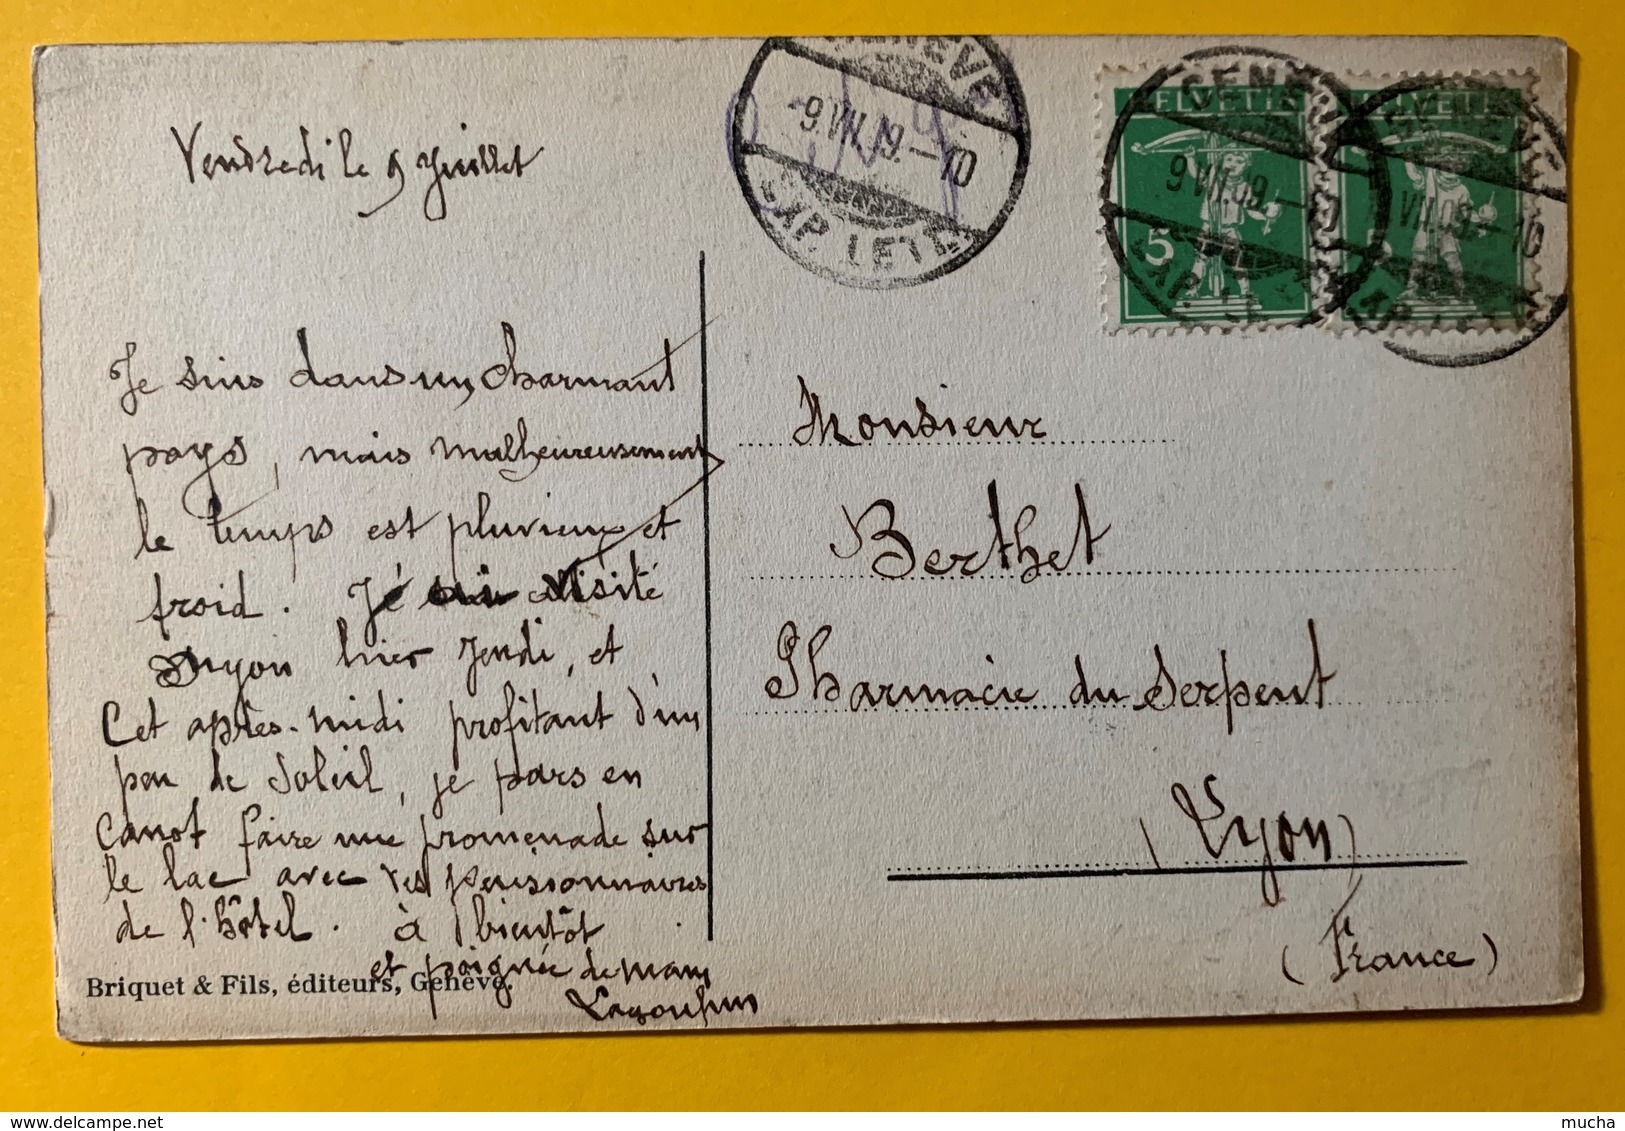 GENÈVE
-9.VII.09.-10
EXP. LETT.
HELVETIA
5
GENÈVE
9.VII.09.-10
EXP. LE
HELVETIA
GENÈVE
VII.09.-10
EXP. LE
Vendredi le 9 Juillet
Je suis dans un charmant
pays, mais malheureusement
le temps est pluvieux et
froid. J'ai visité
Nyon hier Jeudi, et
Cet après-midi profitant d'un
peu de Soleil, je pars en
Canot faire une promenade sur
le lac avec des pensionnaires
de l'hôtel. à bientôt
et poignée de main
Monsieur
Berthet
Pharmacie du Serpent
(Lyon)
(France)
Briquet & Fils, éditeurs, Genève.
delcampe.net
mucha